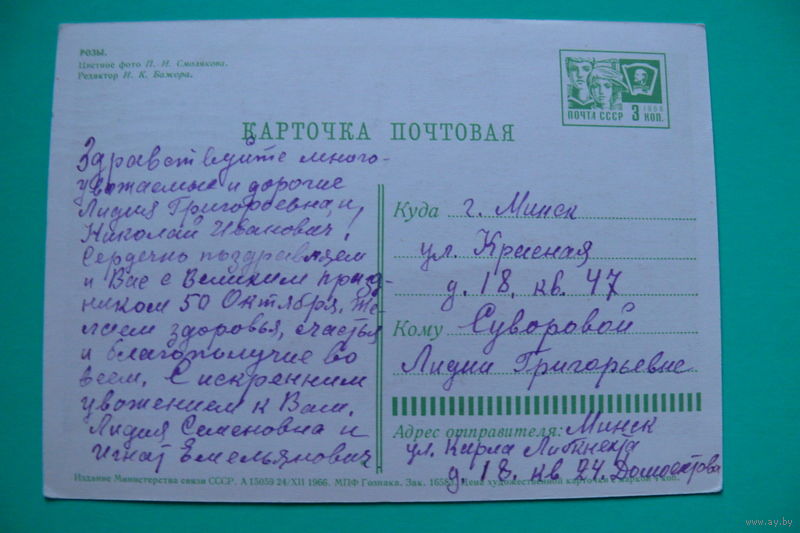 РОЗЫ.
Цветное фото П. И. Смолякова.
Редактор И. К. Бажора.
ПОЧТА СССР 3 КОП.
1966
КАРТОЧКА ПОЧТОВАЯ
Здравствуйте много-
уважаемые и дорогие
Лидия Григорьевна и
Николай Иванович!
Сердечно поздравляем
и Вас с Великим празд-
ником 50 Октября. Же-
лаем здоровья, счастья
и благополучие во
всем. С искренним
уважением к Вам.
Лидия Семеновна и
Игнат Емельянович
Куда г. Минск
ул. Красная
д. 18, кв. 47
Кому Суворовой
Лидии Григорьевне
Адрес отправителя: Минск
ул. Карла Либкнехта
д. 18, кв 24
Издание Министерства связи СССР. А 15059 24/XII 1966. МПФ Гознака. Зак. Цена художественной карточки с маркой 4 коп.
www.ay.by